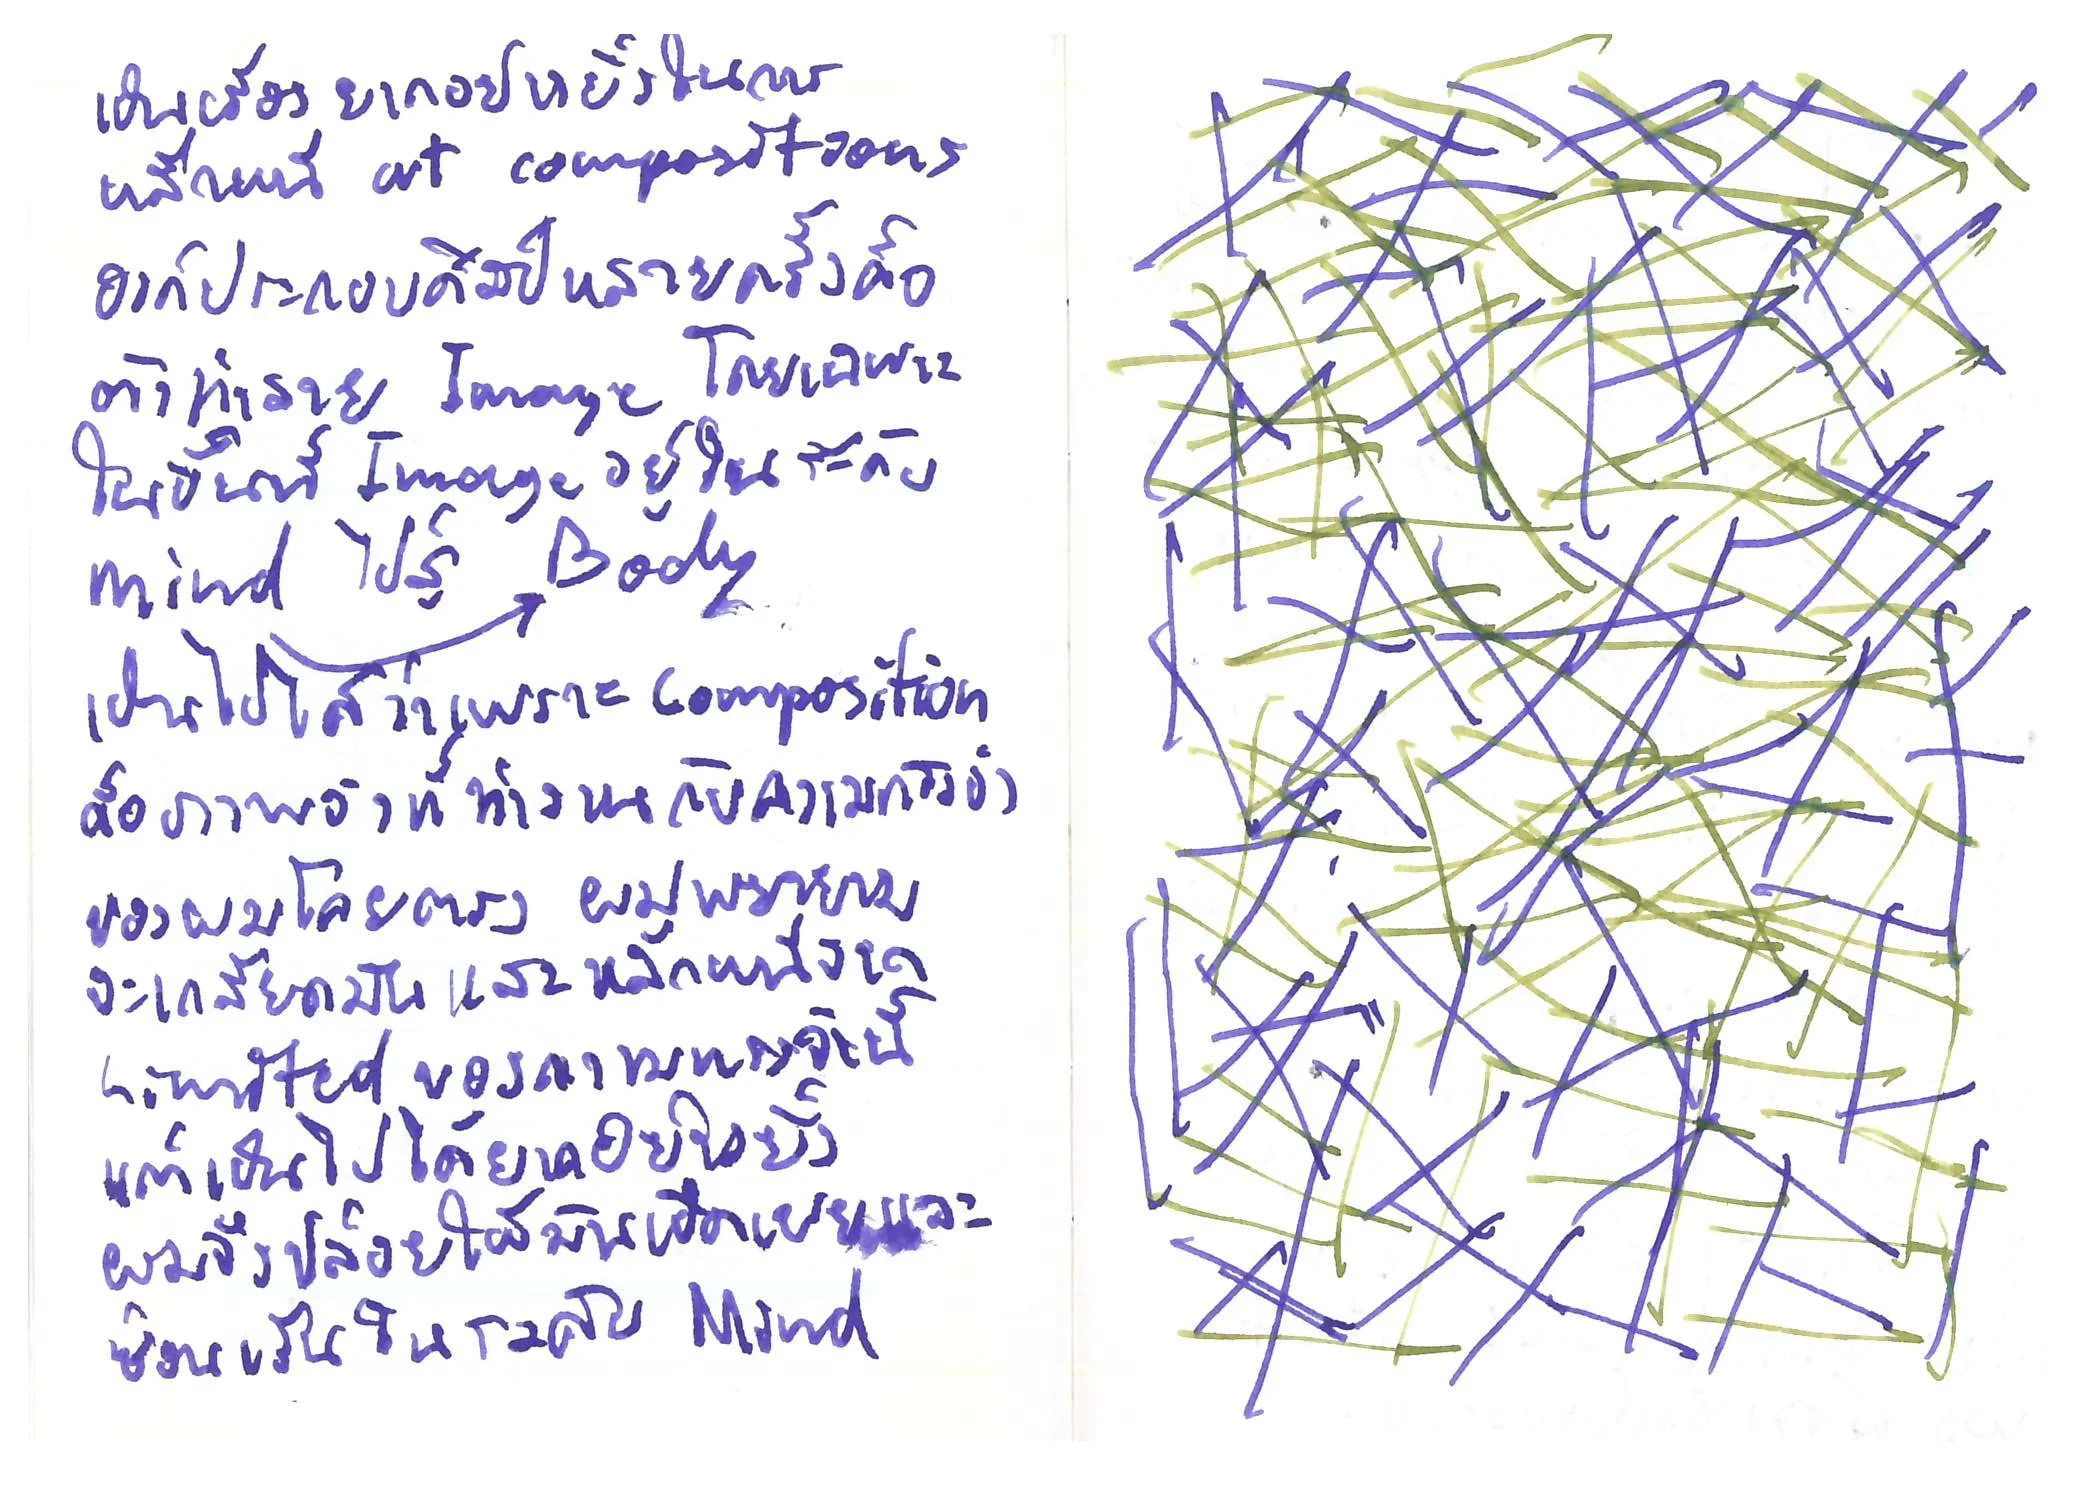 เป็นเรื่องยากอย่างยิ่งในการ
หลีกหนี art compositions
องค์ประกอบศิลป์หลายครั้งคือ
ตัวทำลาย Image โดยเฉพาะ
ในขั้นที่ Image อยู่ในระดับ
mind ไปสู่ Body
เป็นไปได้ว่าเพราะ composition
คือภาพจำที่ทำงานกับความทรงจำ
ของผมโดยตรง ผมพยายาม
จะเกลียดมันและหลีกหนีจาก
Limited ของความทรงจำนี้
แต่เป็นไปได้ยากอย่างยิ่ง
ผมจึงปล่อยให้มัน และ
ซ่อนเร้นในระดับ Mind